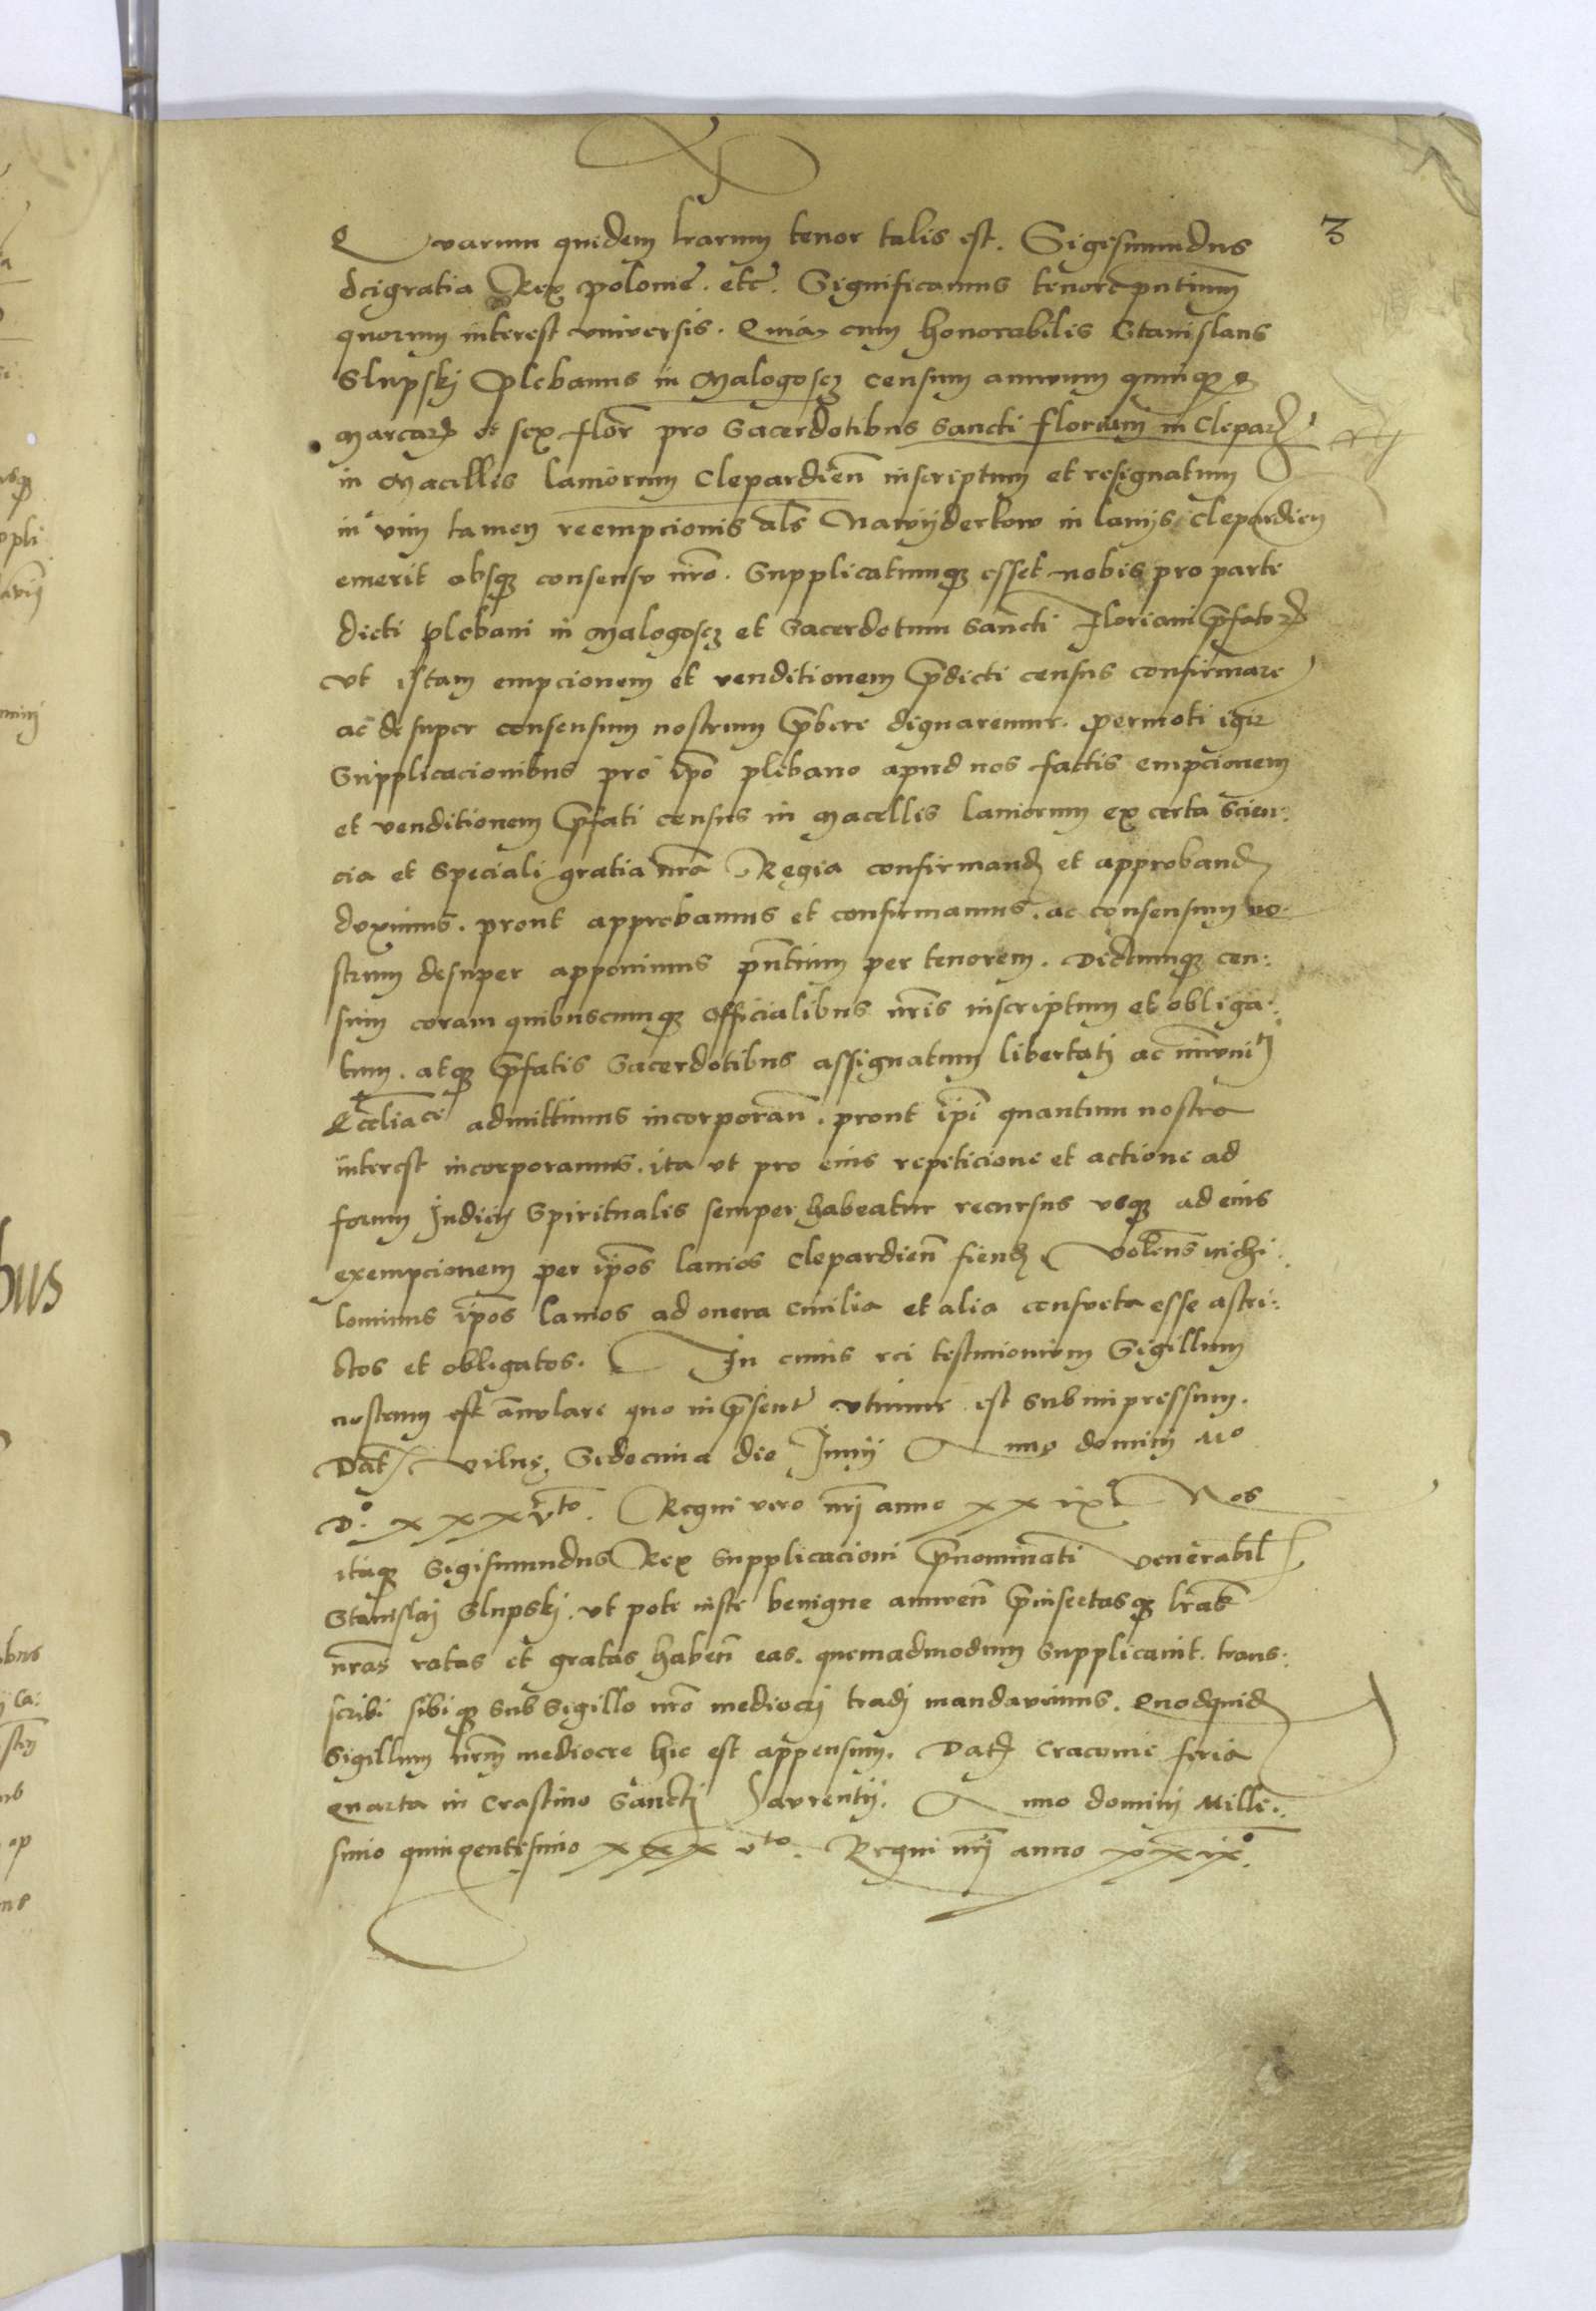 3
Quarum quidem lrarum tenor talis est. Sigismundus
deigratia Rex polonie. etc. Significamus tenore pntium
quorum interest universis. Quia cum honorabilis Stanislaus
Slupskj Plebanus in Malogoscz censum annuum quinqz
Marcarz et sex flor pro Sacerdotibus sancti floriani in Clepar
in Macellis laniorum Clepardien inscriptum et resignatum
in vim tamen reempcionis als Nawyderkow in lanijs Clepardien
emerit absqz consensu nro. Supplicatumqz esset nobis pro parte
dicti plebani in Malogoscz et Sacerdotum Sancti Floriani pfatorz
vt istam empcionem et venditionem pdicti census confirmare
ac de super consensum nostrum pbere dignaremur. permoti igir
Supplicacionibus pro ipo plebano apud nos factis empcionem
et venditionem pfati census in Macellis laniorum ex certa Scien:
cia et Speciali gratia nra Regia confirmand et approband
duximus. prout approbamus et confirmamus. ac consensum no-
strum desuper apponimus pntium per tenorem. Dictumqz cen:
sum coram quibuscumqz Officialibus nris inscriptum et obliga:
tum. atqz pfatis Sacerdotibus assignatum libertatj ac
admittimus incorporan. prout ipi quantum nostra
interest incorporamus. ita vt pro eius repeticione et actione ad
forum Judicij Spiritualis semper habeatur recursus vsqz ad eius
exempcionem per ipos lanios Clepardien fiend Volens nichi:
lominus ipos lanios ad onera Ciuilia et alia consueta esse astri:
ctos et obligatos. In cuius rei testimonium Sigillum
nostrum est anulare quo inpsent vtimur est Subimpressum.
Dat Vilne. die Junij Anno dominj Mo
D. xxxvto. Regni vero nrj anno xxix Nos
itaqz Sigismundus Rex Supplicacioni pnominati venerabil
Stanislaj Slupskj. vt pote iuste benigne annuen pinsertasqz lras
nras ratas et gratas haben eas. quemadmodum Supplicauit. trans:
scribi sibiqz sub Sigillo nro mediocrj tradj mandauimus. Quodquid
Sigillum nrm mediocre hic est appensum. Dat Cracouie feria
Quarta in Crastino Sanctj Laurentij. Anno dominj Mille:
simo quingentesimo xxx vto. Regni nrj anno xxix.